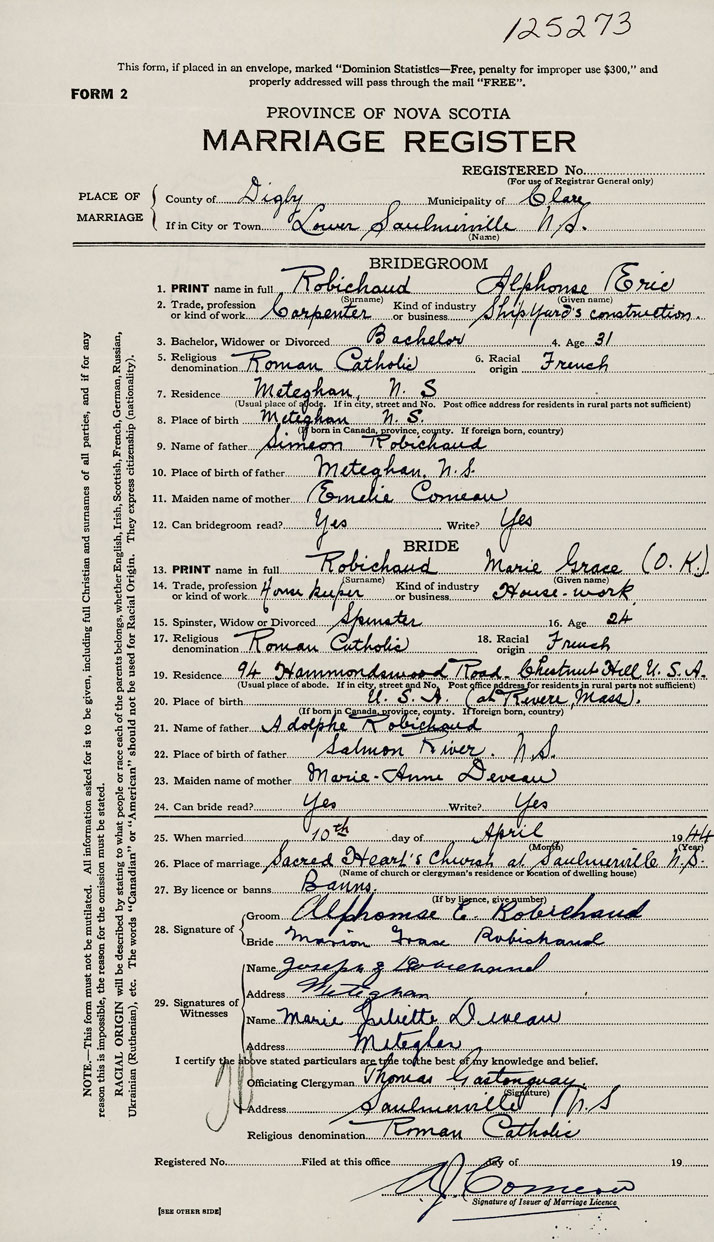 125273
This form, if placed in an envelope, marked “Dominion Statistics—Free, penalty for improper use $300,” and
properly addressed will pass through the mail “FREE”.
FORM 2
PROVINCE OF NOVA SCOTIA
MARRIAGE REGISTER
REGISTERED No.
(For use of Registrar General only)
PLACE OF MARRIAGE
County of Digby Municipality of Clare
If in City or Town Lower Saulnierville N.S.
(Name)
BRIDEGROOM
1. PRINT name in full Robichaud Alphonse Eric
(Surname) (Given name)
2. Trade, profession or kind of work Carpenter Kind of industry or business Ship Yard's construction.
3. Bachelor, Widower or Divorced Bachelor 4. Age 31
5. Religious denomination Roman Catholic 6. Racial origin French
7. Residence Meteghan, N. S
(Usual place of abode. If in city, street and No. Post office address for residents in rural parts not sufficient)
8. Place of birth Meteghan N. S.
(If born in Canada, province, county. If foreign born, country)
9. Name of father Simeon Robichaud
10. Place of birth of father Meteghan, N.S.
11. Maiden name of mother Emelie Comeau
12. Can bridegroom read? Yes Write? Yes
BRIDE
13. PRINT name in full Robichaud Marie Grace (O.K.)
(Surname) (Given name)
14. Trade, profession or kind of work House keeper Kind of industry or business House-work
15. Spinster, Widow or Divorced Spinster 16. Age 24
17. Religious denomination Roman Catholic 18. Racial origin French
19. Residence 94 Hammondswood Road. Chestnut Hill U.S.A.
(Usual place of abode. If in city, street and No. Post office address for residents in rural parts not sufficient)
20. Place of birth U.S.A. (at Revere, Mass).
(If born in Canada, province, county. If foreign born, country)
21. Name of father Adolphe Robichaud
22. Place of birth of father Salmon River. N.S.
23. Maiden name of mother Marie-Anne Deveau
24. Can bride read? Yes Write? Yes
25. When married 10th day of April 1944
(Month) (Year)
26. Place of marriage Sacred Heart's Church at Saulnierville N.S.
(Name of church or clergyman's residence or location of dwelling house)
27. By licence or banns Banns.
(If by licence, give number)
28. Signature of
Groom Alphonse E. Robichaud
Bride Marion Grace Robichaud
29. Signatures of Witnesses
Name Joseph
Address Meteghan
Name Marie Juliette Deveau
Address Meteghan
I certify the above stated particulars are true to the best of my knowledge and belief.
Officiating Clergyman Thomas Gastonguay
(Signature)
Address Saulnierville N.S
Religious denomination Roman Catholic
Registered No. Filed at this office day of 19
A.J. Comeau
Signature of Issuer of Marriage Licence
[SEE OTHER SIDE]
NOTE.—This form must not be mutilated. All information asked for is to be given, including full Christian and surnames of all parties, and if for any
reason this is impossible, the reason for the omission must be stated.
RACIAL ORIGIN will be described by stating to what people or race each of the parents belongs, whether English, Irish, Scottish, French, German, Russian,
Ukrainian (Ruthenian), etc. The words “Canadian” or “American” should not be used for Racial Origin. They express citizenship (nationality).